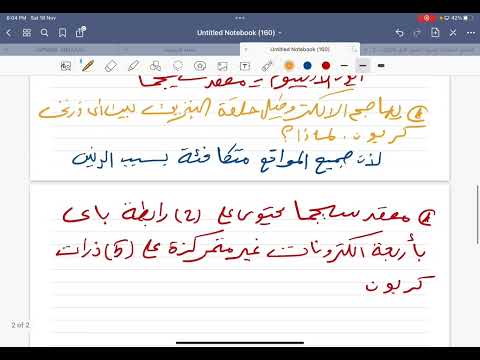 6:04 PM Sat 18 Nov
Untitled Notebook (160)
Untitled Notebook (160)
ايون الارينيوم = معقد سيجما
يهاجم الالكتروفيل حلقة البنزين بين اي ذرتي
كربون. لماذا؟
لان جميع المواقع متكافئة بسبب الرنين
معقد سيجما يحتوي على (2) رابطة باي
بأربعة الكترونات غير متمركزة على (5) ذرات
كربون
2 of 2